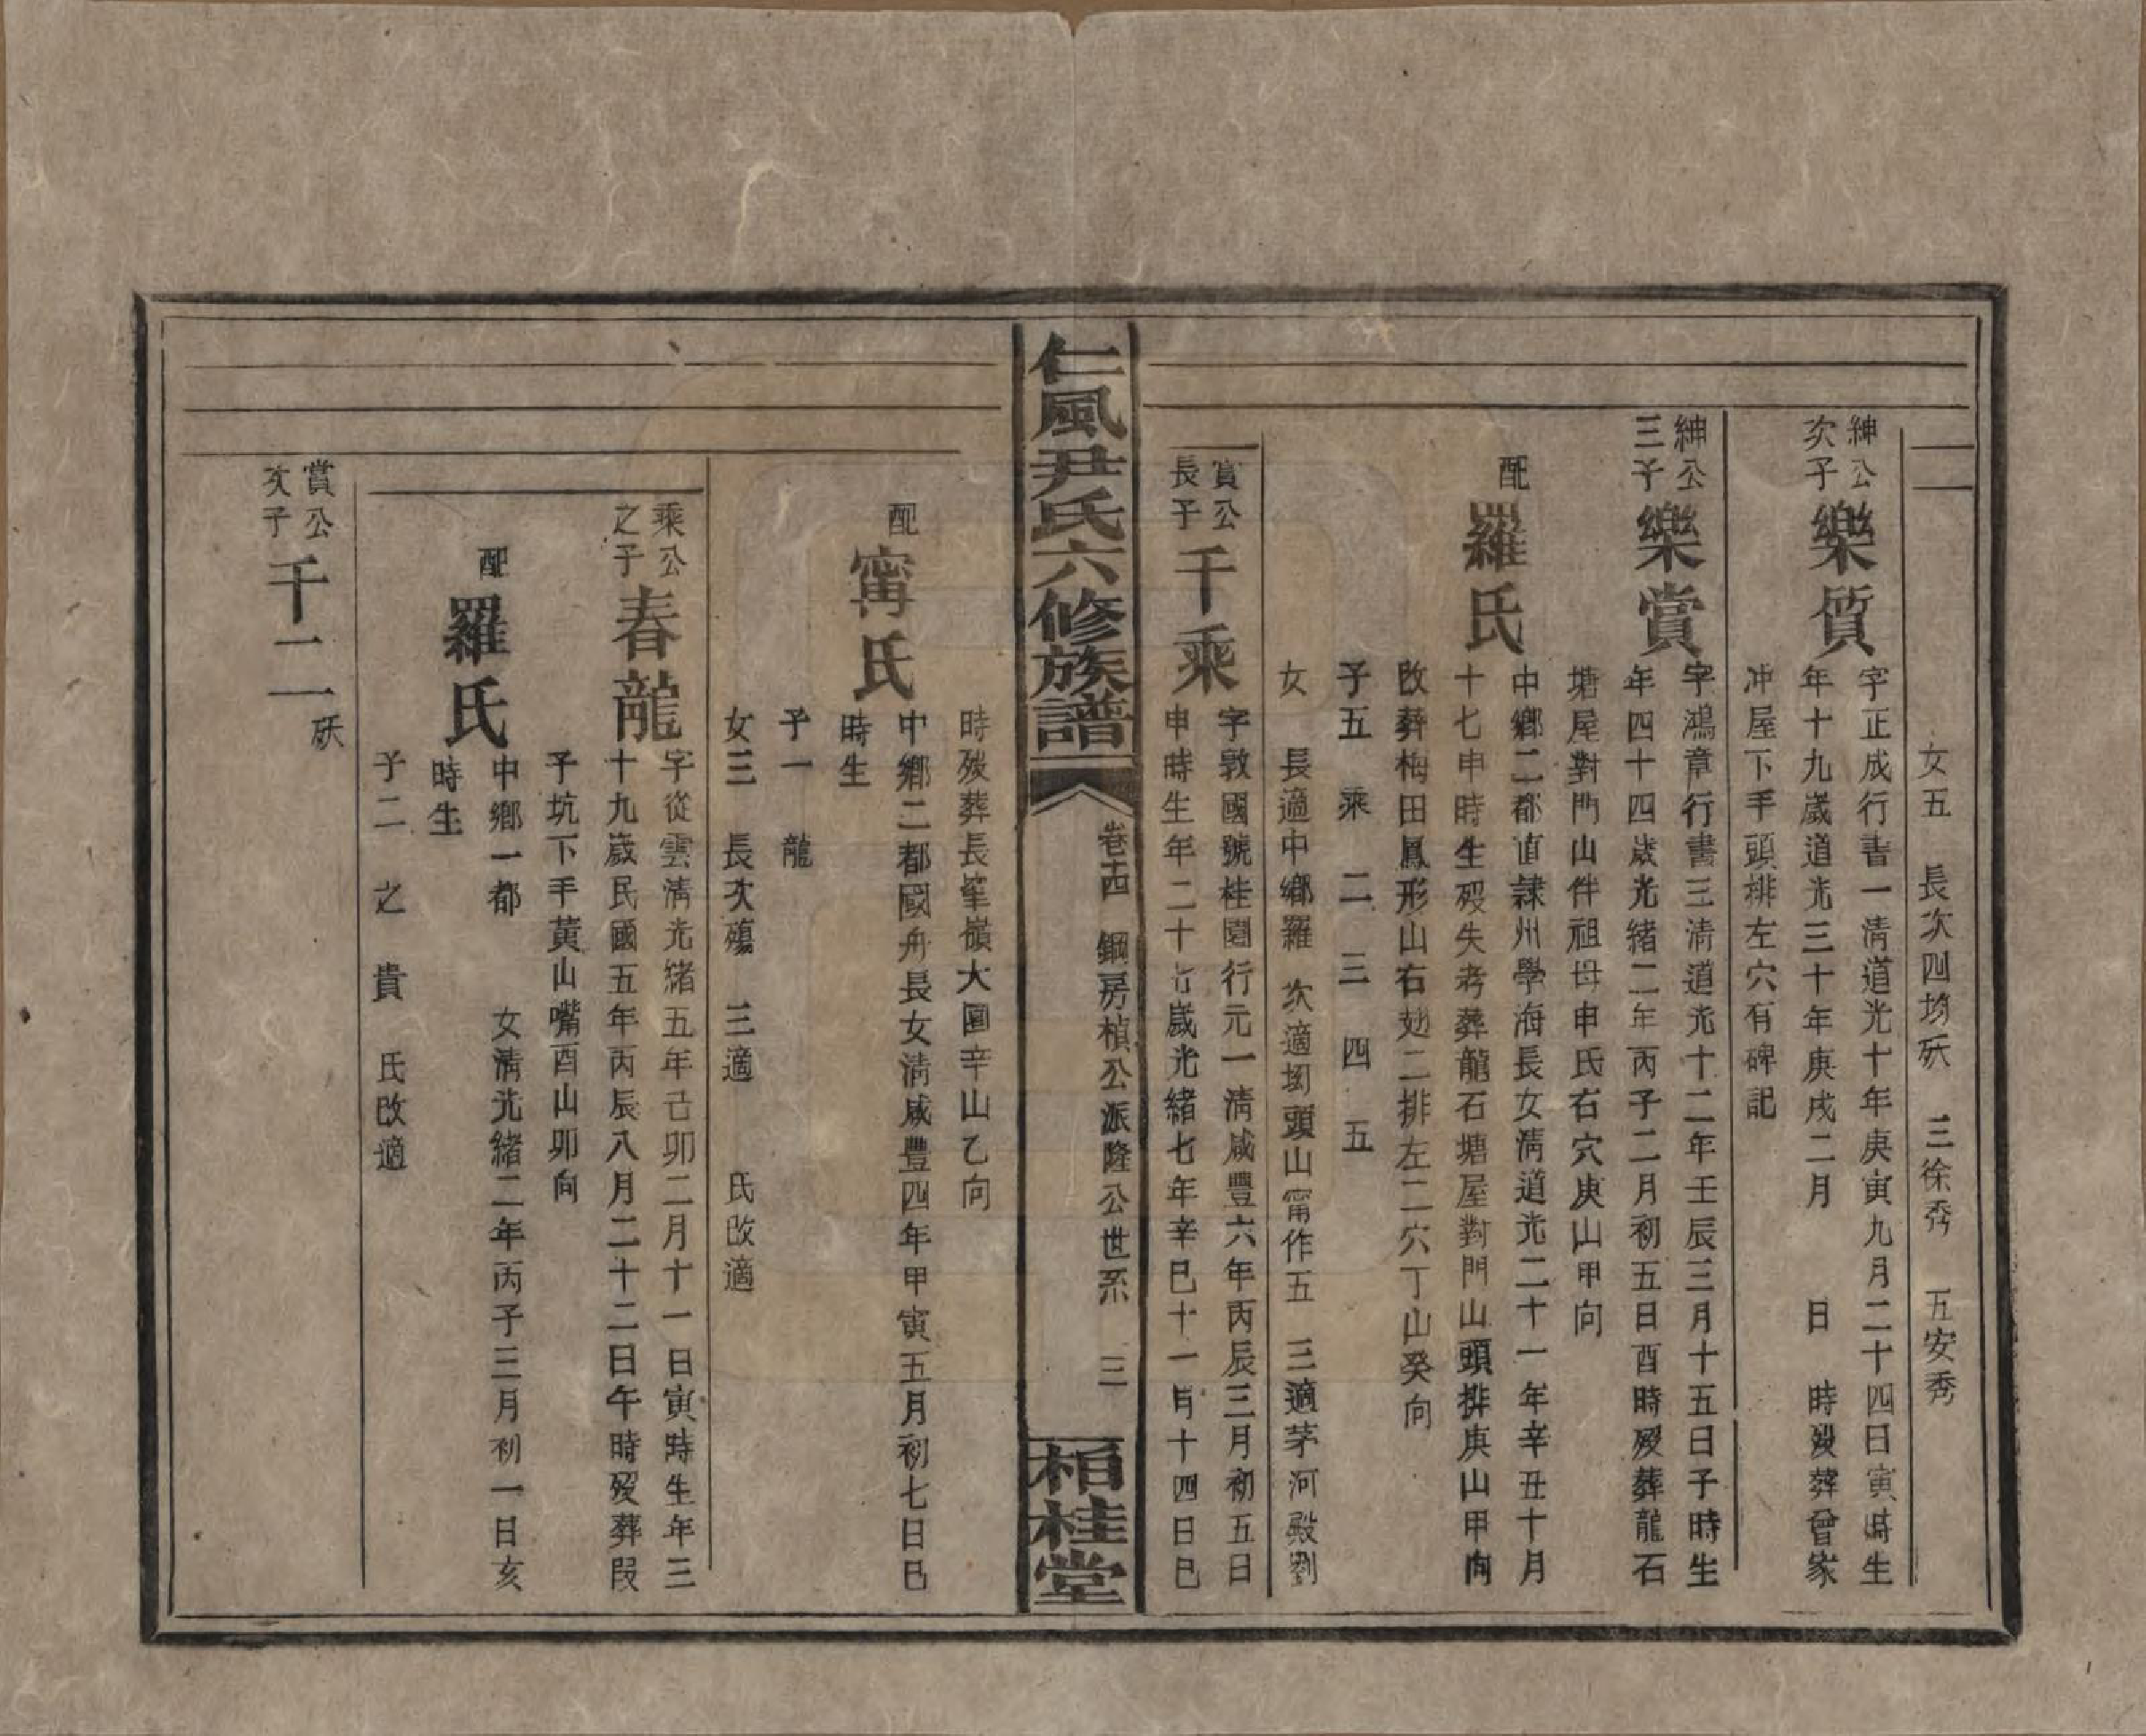 女五 長次四均殀 三徐秀 五安秀
紳公
次子
樂質
字正成行書一清道光十年庚寅九月二十四日寅時生
年十九歲道光三十年庚戌二月 日 時歿葬曾家
冲屋下手頭排左穴有碑記
紳公
三子
樂賞
字鴻章行書三清道光十二年壬辰三月十五日子時生
年四十四歲光緒二年丙子二月初五日酉時歿葬龍石
塘屋對門山伴祖母申氏右穴庚山甲向
配
羅氏
中鄉二都直隸州學海長女清道光二十一年辛丑十月
十七申時生歿失考葬龍石塘屋對門山頭排庚山甲向
改葬梅田鳳形山右翅二排左二穴丁山癸向
子五 乘 二 三 四 五
女 長適中鄉羅 次適坳頭山甯作五 三適茅河殿劉
賞公
長子
千乘
字敦國號桂園行元一清咸豐六年丙辰三月初五日
申時生年二十六歲光緒七年辛巳十一月十四日巳
仁風尹氏六修族譜
卷十四 鋼房楨公派隆公世系 三
栢桂堂
時歿葬長嶺大圍辛山乙向
配
甯氏
中鄉二都國舟長女清咸豐四年甲寅五月初七日巳
時生
子一 龍
女三 長次殤 三適 氏改適
乘公
之子
春龍
字從雲清光緒五年己卯二月十一日寅時生年三
十九歲民國五年丙辰八月二十二日午時歿葬段
子坑下手黃山嘴酉山卯向
配
羅氏
中鄉一都 女清光緒二年丙子三月初一日亥
時生
子二 之 貴 氏改適
賞公
次子
千二
殀